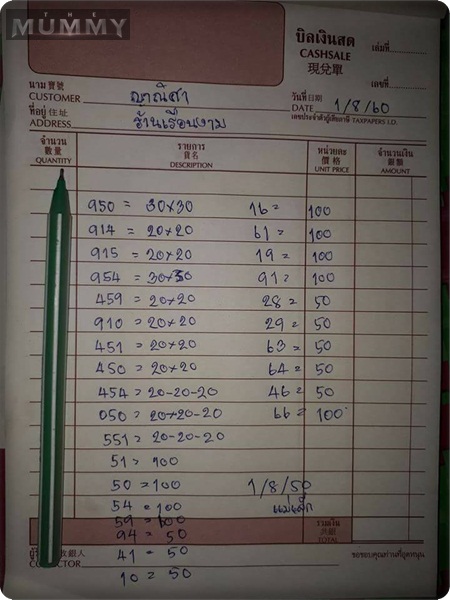 THE
MUMMY
บิลเงินสด
CASHSALE
現兌單
เล่มที่
เลขที่
นาม 寶號
CUSTOMER ญาณิศา
วันที่ 日期
DATE 1/8/60
ที่อยู่ 住址
ADDRESS ร้านเรือนงาม
เลขประจำตัวผู้เสียภาษี TAXPAPERS I.D.
จำนวน รายการ หน่วยละ จำนวนเงิน
數量 貨名 價格 銀額
QUANTITY DESCRIPTION UNIT PRICE AMOUNT
950 = 30×30 16 = 100
914 = 20×20 61 = 100
915 = 20×20 19 = 100
954 = 30×30 91 = 100
459 = 20×20 28 = 50
910 = 20×20 29 = 50
451 = 20×20 63 = 50
450 = 20×20 64 = 50
454 = 20-20-20 46 = 50
050 = 20×20-20 66 = 100
551 = 20-20-20
51 = 100
50 = 100 1/8/50
54 = 100 แม่เล็ก
59 = 100
94 = 50
รวมเงิน
共銀
TOTAL
41 = 50
收銀人
ขอขอบคุณท่านที่อุดหนุน
10 = 50